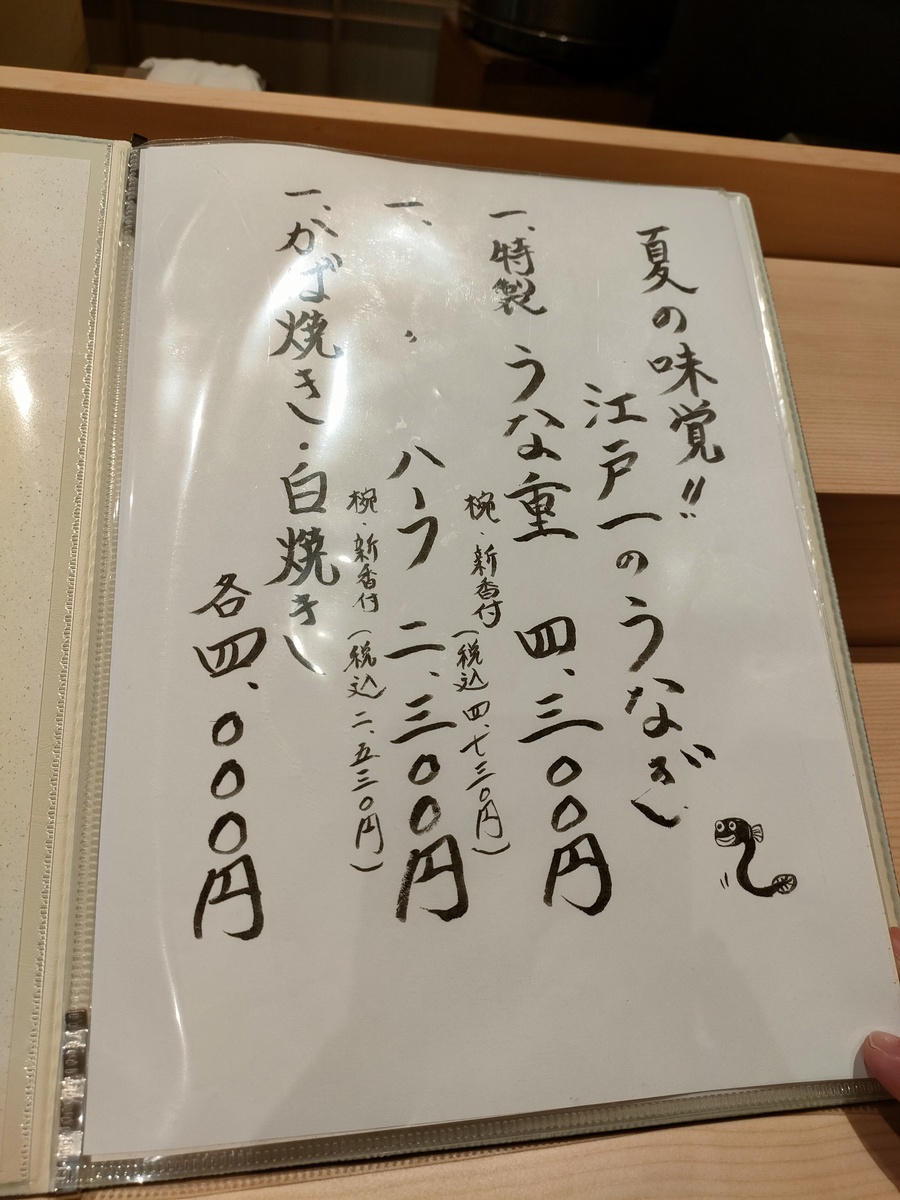 夏の味覚!!
江戸一のうなぎ
一、特製 うな重 四、三〇〇円
椀・新香付(税込四、七三〇円)
一、〃 ハーフ 二、三〇〇円
椀・新香付(税込二、五三〇円)
一、かば焼き・白焼き
各四、〇〇〇円